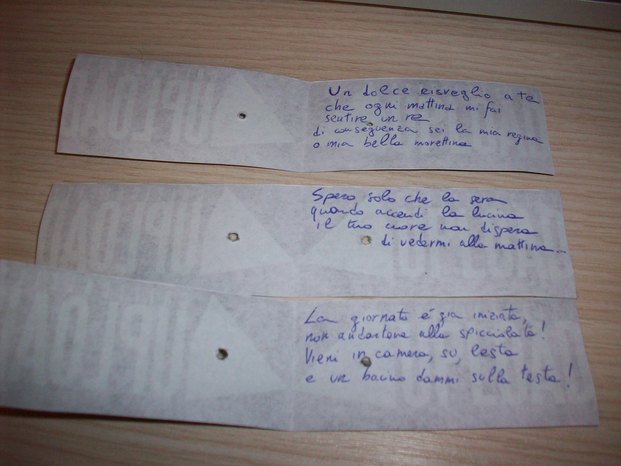 Un dolce risveglio a te
che ogni mattina mi fai
sentire un re
di conseguenza sei la mia regina
o mia bella morettina
Spero solo che la sera
quando accendi la lucina
il tuo cuore non dispera
di vedermi alla mattina...
La giornata è già iniziata,
non andartene alla spicciolata!
Vieni in camera, su, lesta
e un bacino dammi sulla testa!